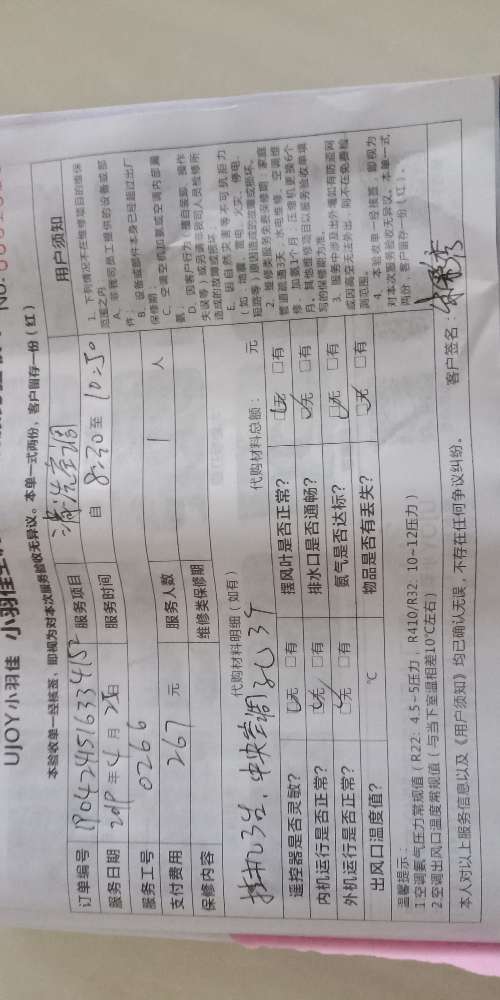 UJOY 小羽佳
本验收单一经核签，即视为对本次服务验收无异议。本单一式两份，客户留存一份（红）
订单编号 服务项目 清洗空调
服务日期 2019 年 4 月 25 日 服务时间 自 8:30 至 10:50
服务工号 0266
支付费用 267 元 服务人数 1 人
保修内容 维修类保修期
代购材料明细（如有） 代购材料总额： 元
挂机3台，中央空调
遥控器是否灵敏？ □无 □有 摆风叶是否正常？ □无 □有
内机运行是否正常？ □无 □有 排水口是否通畅？ □无 □有
外机运行是否正常？ □无 □有 氨气是否达标？ □无 □有
出风口温度值？ ℃ 物品是否有丢失？ □无 □有
温馨提示：
1空调氨气压力常规值（R22：4.5~5压力； R410/R32：10~12压力）
2空调出风口温度常规值（与当下室温相差10℃左右）
本人对以上服务信息以及《用户须知》均已确认无误，不存在任何争议纠纷。 客户签名：
用户须知
1、下列情况不在维修项目的维保
范围之内
A、非我司员工提供的设备或部
件；
B、设备或部件本身已经超过出厂
保修期；
C、空调空机加氨或空调内部漏
氨；
D、因客户行为（擅自装卸、操作
失误等）或另请非我司人员检修所
造成的故障或损坏；
E、因自然灾害等不可抗拒力
（如：地震、雷电、火灾、停电、
短路等）原因造成的故障或损坏。
2、维修类服务免费保修期：家庭
管道疏通3天、水电维修、空调维
修、加氨1个月，压缩机更换6个
月。其他维修项目以服务验收单填
写的保修期为准。
3、服务中涉及出外墙如有防盗网
或因高空无法外出，则不在免费检
测范围。
4、本验收单一经核签，即视为
对本次服务验收无异议。本单一式
两份，客户留存一份（红）。